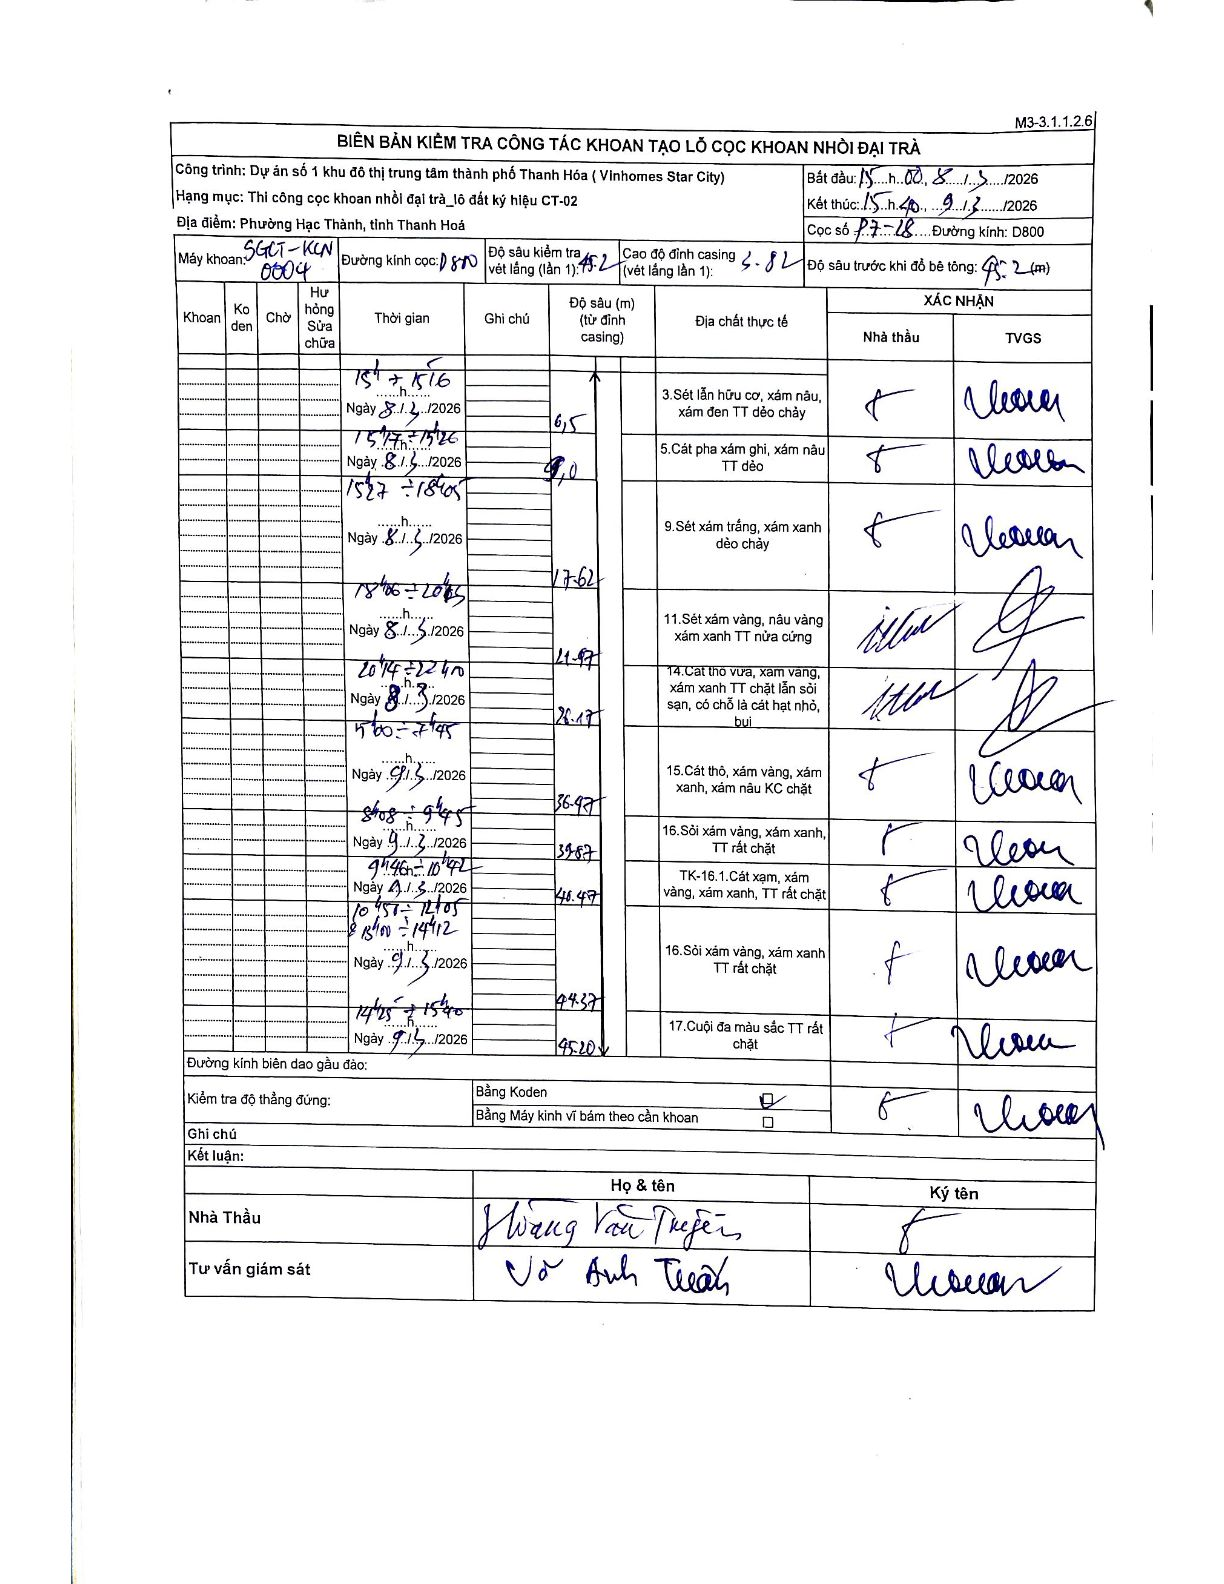 M3-3.1.1.2.6
BIÊN BẢN KIỂM TRA CÔNG TÁC KHOAN TẠO LỖ CỌC KHOAN NHỒI ĐẠI TRÀ
Công trình: Dự án số 1 khu đô thị trung tâm thành phố Thanh Hóa ( Vinhomes Star City)
Hạng mục: Thi công cọc khoan nhồi đại trà_lô đất ký hiệu CT-02
Địa điểm: Phường Hạc Thành, tỉnh Thanh Hoá
Bắt đầu: 15 h 00, 8 / 3 /2026
Kết thúc: 15 h 40, 9 / 3 /2026
Cọc số P7-28 Đường kính: D800
Máy khoan: SGCT-KCN 0004
Đường kính cọc: D800
Độ sâu kiểm tra vét lắng (lần 1): 45.2
Cao độ đỉnh casing (vét lắng lần 1): 3.82
Độ sâu trước khi đổ bê tông: 45.2 (m)
Khoan
Ko den
Chờ
Hư hỏng Sửa chữa
Thời gian
Ghi chú
Độ sâu (m) (từ đỉnh casing)
Địa chất thực tế
XÁC NHẬN
Nhà thầu
TVGS
......h......
Ngày 8 / 3 /2026
6,5
3.Sét lẫn hữu cơ, xám nâu, xám đen TT dẻo chảy
15h17 ÷ 15h26
Ngày 8 / 3 /2026
9,0
5.Cát pha xám ghi, xám nâu TT dẻo
15h27 ÷ 18h05
......h......
Ngày 8 / 3 /2026
17.62
9.Sét xám trắng, xám xanh dẻo chảy
......h......
Ngày 8 / 3 /2026
21.97
11.Sét xám vàng, nâu vàng xám xanh TT nửa cứng
20h14 ÷ 22h10
Ngày 8 / 3 /2026
26.17
14.Cát thô vừa, xám vàng, xám xanh TT chặt lẫn sỏi sạn, có chỗ là cát hạt nhỏ, bụi
......h......
Ngày 9 / 3 /2026
36.97
15.Cát thô, xám vàng, xám xanh, xám nâu KC chặt
8h08 ÷ 9h45
......h......
Ngày 9 / 3 /2026
39.87
16.Sỏi xám vàng, xám xanh, TT rất chặt
9h46 ÷ 10h42
Ngày 9 / 3 /2026
40.47
TK-16.1.Cát xạm, xám vàng, xám xanh, TT rất chặt
13h00 ÷ 14h12
......h......
Ngày 9 / 3 /2026
44.37
16.Sỏi xám vàng, xám xanh TT rất chặt
14h25 ÷ 15h40
......h......
Ngày 9 / 3 /2026
45.20
17.Cuội đa màu sắc TT rất chặt
Đường kính biên dao gầu đào:
Kiểm tra độ thẳng đứng:
Bằng Koden
Bằng Máy kinh vĩ bám theo cần khoan
Ghi chú
Kết luận:
Họ & tên
Ký tên
Nhà Thầu
Hoàng Văn
Tư vấn giám sát
Võ Anh Tuấn